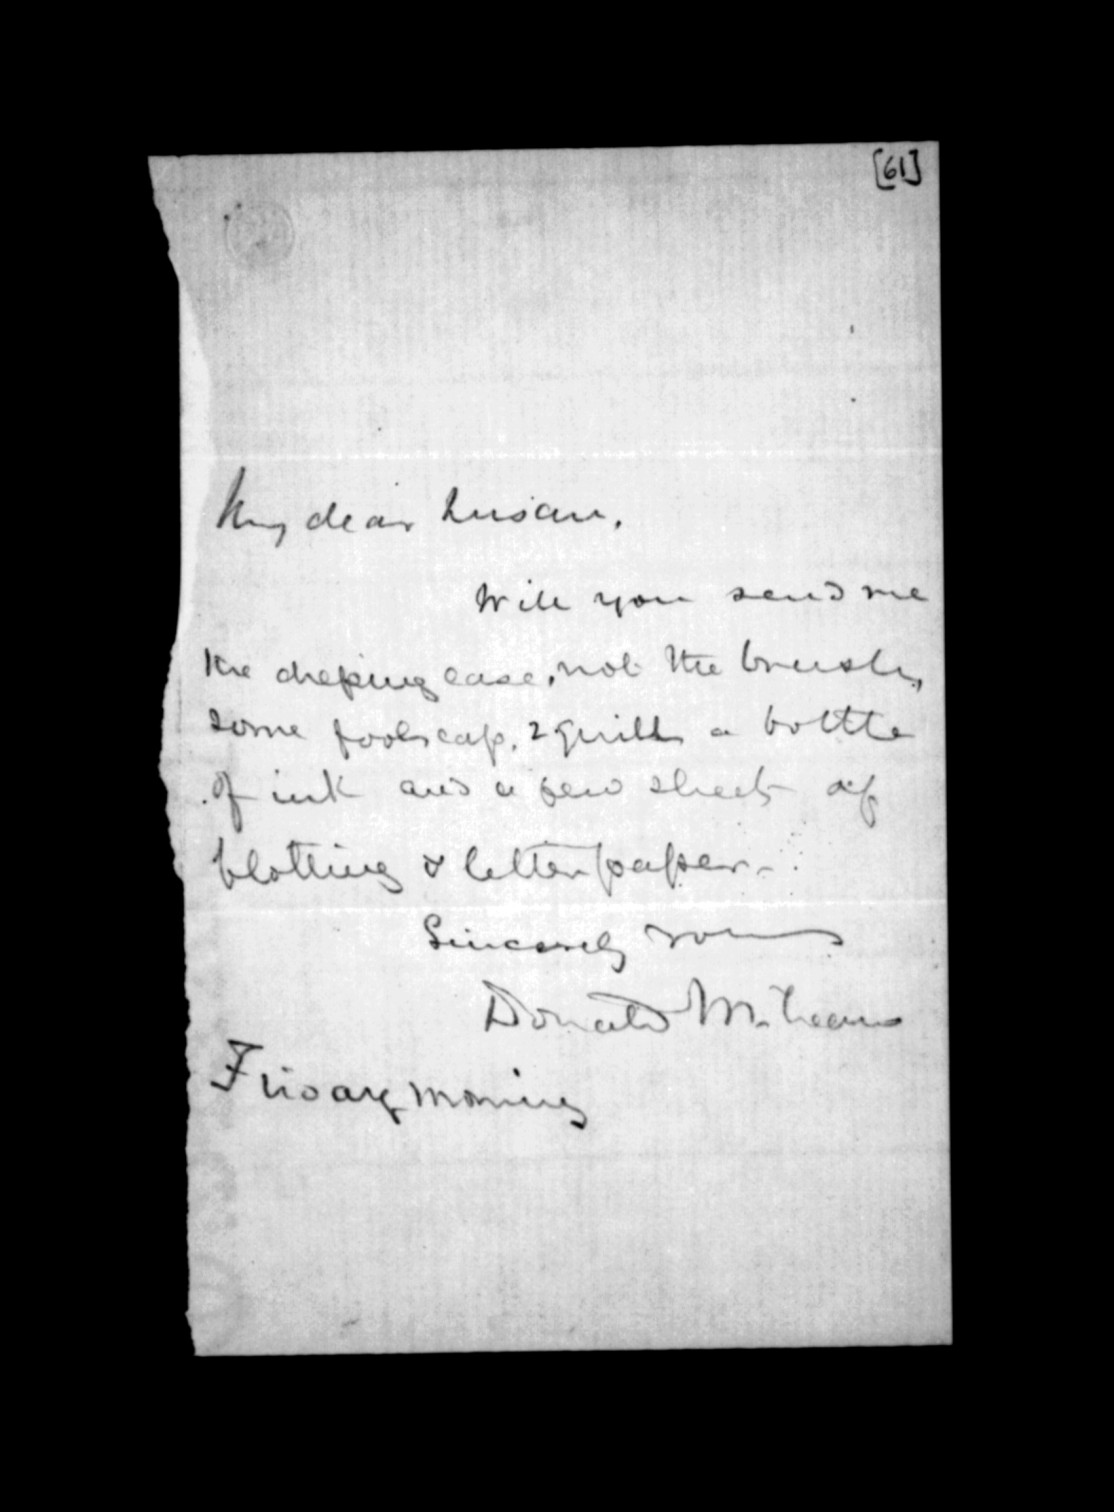 [61]
My dear Susan,
Will you send me
the dressing case, not the brush,
some foolscap, 2 quills a bottle
of ink and a few sheets of
blotting & letter paper.
Sincerely yours
Donald McLean
Friday morning